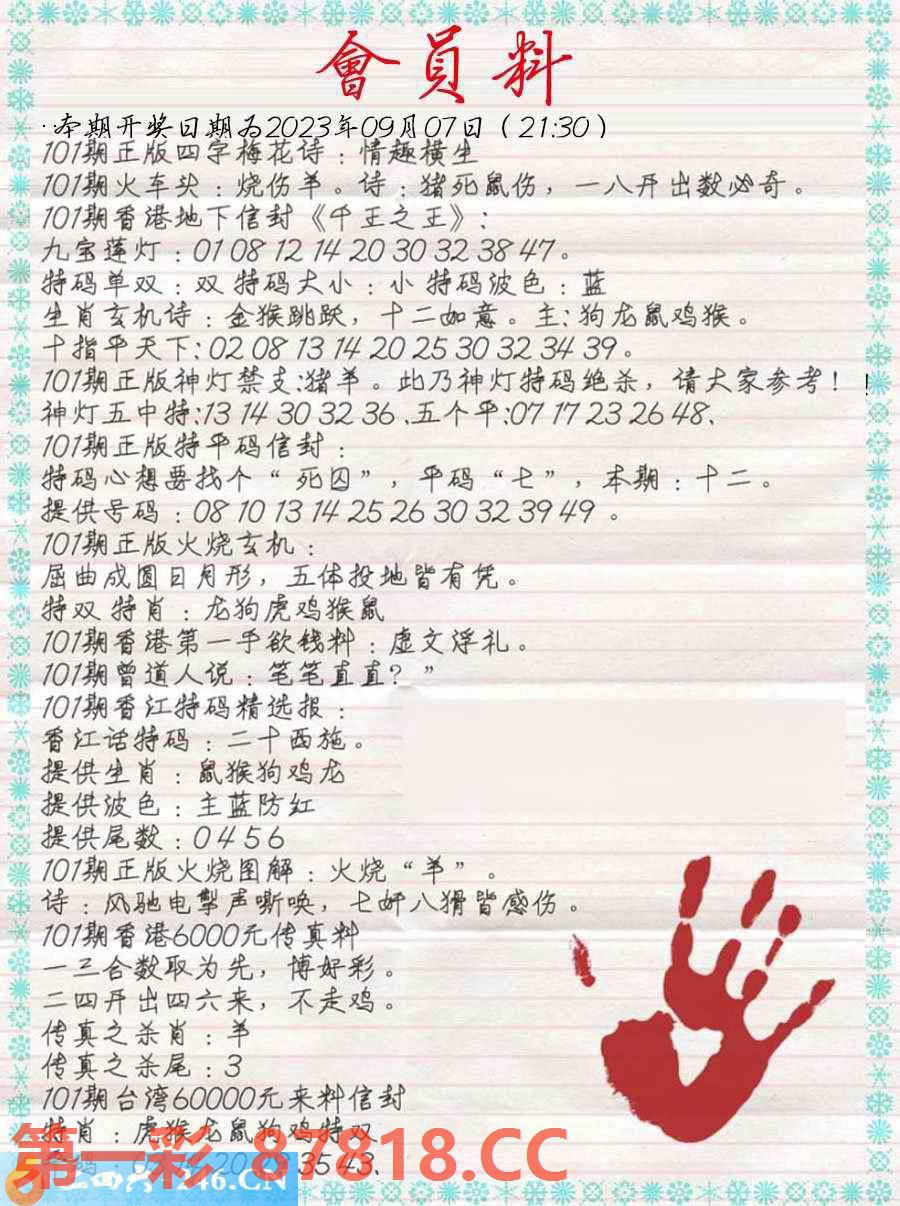 會員料
·本期开奖日期为2023年09月07日（21:30）
101期正版四字梅花诗：情趣横生
101期火车头：烧伤羊。诗：猪死鼠伤，一八开出数必奇。
101期香港地下信封《千王之王》：
九宝莲灯：01 08 12 14 20 30 32 38 47。
特码单双：双 特码大小：小 特码波色：蓝
生肖玄机诗：金猴跳跃，十二如意。主:狗龙鼠鸡猴。
十指平天下:02 08 13 14 20 25 30 32 34 39。
101期正版神灯禁支:猪羊。此乃神灯特码绝杀，请大家参考！！
神灯五中特:13 14 30 32 36 .五个平:07 17 23 26 48、
101期正版特平码信封：
特码心想要找个“死囚”，平码“七”，本期：十二。
提供号码：08 10 13 14 25 26 30 32 39 49 。
101期正版火烧玄机：
屈曲成圆日月形，五体投地皆有凭。
特双 特肖：龙狗虎鸡猴鼠
101期香港第一手欲钱料：虚文浮礼。
101期曾道人说：笔笔直直？”
101期香江特码精选报：
香江话特码：二十西施。
提供生肖：鼠猴狗鸡龙
提供波色：主蓝防红
提供尾数：0 4 5 6
101期正版火烧图解：火烧“羊”。
诗：风驰电掣声嘶唤，七奸八猾皆感伤。
101期香港6000元传真料
一三合数取为先，博好彩。
二四开出四六来，不走鸡。
传真之杀肖：羊
传真之杀尾：3
101期台湾60000元来料信封
特肖：虎猴龙鼠狗鸡特双
35 43、
第一彩 87818.CC
246.CN